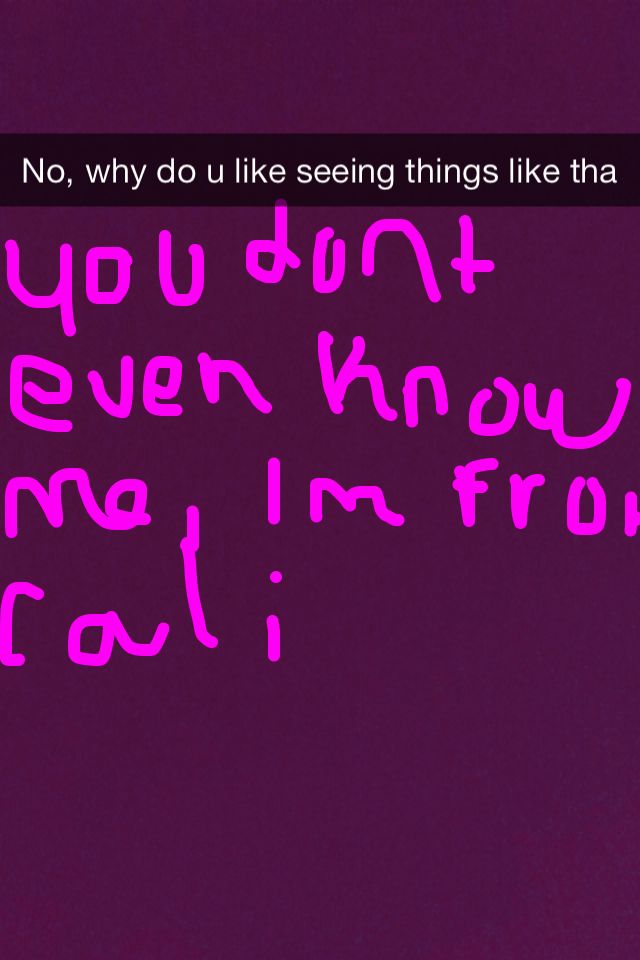 No, why do u like seeing things like tha
you dont
even know
me, Im fron
cali